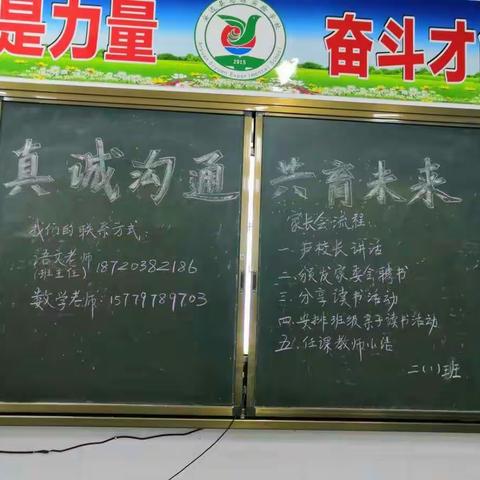 是力量
奋斗才
2015
真诚沟通 共育未来
我们的联系方式:
语文老师
(班主任) 18720382186
数学老师: 15779789703
家长会流程:
一. 卢校长讲话
二. 颁发家委会聘书
三. 分享读书活动
四. 安排班级亲子读书活动
五. 任课教师小结
二(1)班